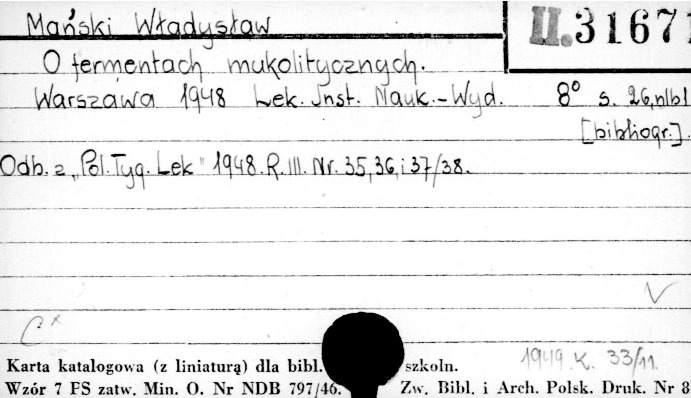 Mański Władysław
II. 31671
O fermentach mukolitycznych.
Warszawa 1948 Lek. Inst. Nauk.-Wyd. 8° s. 26, nlb1
[bibliogr.].
Odb. z „Pol. Tyg. Lek" 1948. R. III. Nr. 35, 36, i 37/38.
V
C x
1949. K. 33/11.
Karta katalogowa (z liniaturą) dla bibl. szkoln.
Wzór 7 FS zatw. Min. O. Nr NDB 797/46. Zw. Bibl. i Arch. Polsk. Druk. Nr 8